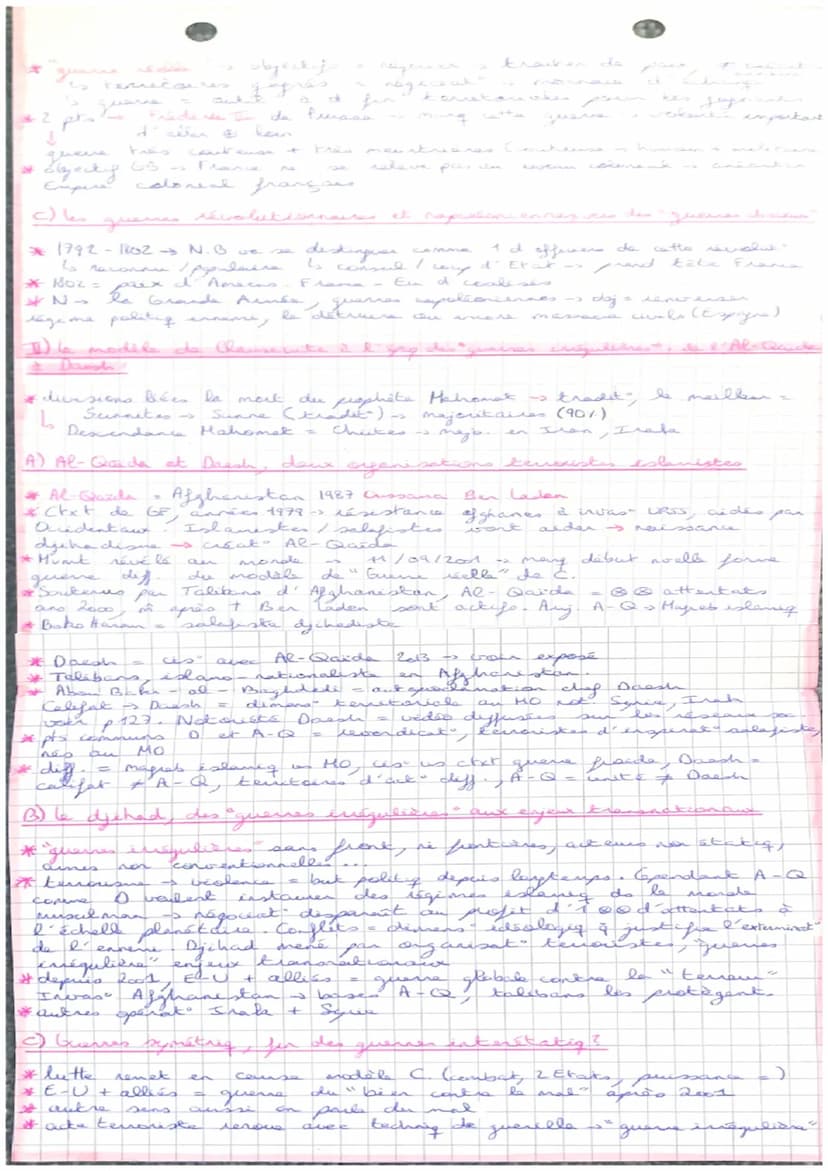 * "guerre réelle" → objectif = négocier → traiter de paix,
↳ territoires gagnés = négociat° → monnaie d'échange
↳ guerre = outil à d fin territoriales pour les
* 2 pts → Frédéric II de Prusse → marq cette guerre → volonté important
↓ d'aller
guerre très couteuse + très meurtrière
* objectif GB → France ne se relève pas
Empire colonial français
C) les guerres révolutionnaires et napoléoniennes, vers des "guerres
* 1792 - 1802 → N.B va se distinguer comme 1 d officiers de cette révolut°
↳ reconnu / populaire ↳ consul / coup d'Etat → prend tête France
* 1802 = paix d'Amiens. France - Eu d coalisés
* N → la Grande Armée, guerres napoléoniennes → obj = renverser
régime politiq ennemi, le détruire ou encore massacre civils (Espagne)
II) le modèle de Clausewitz à l'épp des "guerres irrégulières", de l'Al-Qaida
à Daesh.
* divisions liées la mort du prophète Mahomet → tradit°, le meilleur =
↳ Sunnites → Sunna (tradit°) → majoritaires (90%)
Descendance Mahomet = Chiites → majo. en Iran, Irak
A) Al-Qaida et Daesh, deux organisations terroristes islamistes
* Al-Qaida = Afghanistan 1987 Oussama Ben Laden
* Ctxt de GF, années 1979 → résistance afghanes à invas° URSS, aidés par
Occidentaux. Islamistes / salafistes vont aider → naissance
djihadisme → créat° Al-Qaida
* Mvmt révélé au monde → 11/09/2001 → marq début nvelle forme
guerre diff. du modèle de "Guerre réelle" de C.
* Soutenus par Talibans d'Afghanistan, Al-Qaida = ⊗⊗ attentats
ans 2000, m̂ après † Ben Laden sont actifs. Auj A-Q → Magreb islamiq
* Boko Haram = salafiste djihadiste
* Daesh = sciss° avec Al-Qaida 2013 → voir exposé
* Talibans, islamo-nationaliste en Afghanistan.
* Abou Bakr-al-Baghdadi = autoproclamation chef Daesh
Califat → Daesh = dimens° territoriale au MO not Syrie, Irak
voir p 127. Notoriété Daesh = vidéo diffusées sur les réseaux soc
* pts communs D et A-Q = revendicat°, terroristes d'inspirat° salafiste,
nés au MO
* diff. = magreb islamiq vs MO, ctxt guerre froide, Daesh =
califat ≠ A-Q, territoires d'act° diff., A-Q = unité ≠ Daesh
B) le djihad, des "guerres irrégulières" aux enjeux transnationaux
* "guerres irrégulières" sans front, ni frontières, acteurs non étatiq,
armes non conventionnelles...
* terrorisme → violence = but politiq depuis longtemps. Cependant A-Q
comme D veulent instaurer des régimes islamiq ds le monde
musulman → négociat° disparait au profit d'1 ⊗⊗ d'attentats à
l'échelle planétaire. Conflits = dimens° idéologiq q justifie l'exterminat°
de l'ennemi. Djihad mené par organisat° terroristes, "guerres
irrégulière" enjeux transnationaux
* depuis 2001, E-U + alliés = guerre globale contre la "terreur"
Invas° Afghanistan → bases A-Q, talibans les protègent.
* autres opérat° Irak + Syrie
C) Guerres symétriq, fin des guerres interétatiq ?
* lutte remet en cause modèle C. (combat, 2 Etats, puissance =)
* E-U + alliés = guerre du "bien contre le mal" après 2001
* autre sens aussi on parle du mal
* acte terroriste renoue avec techniq de guérilla → "guerre irrégulière"